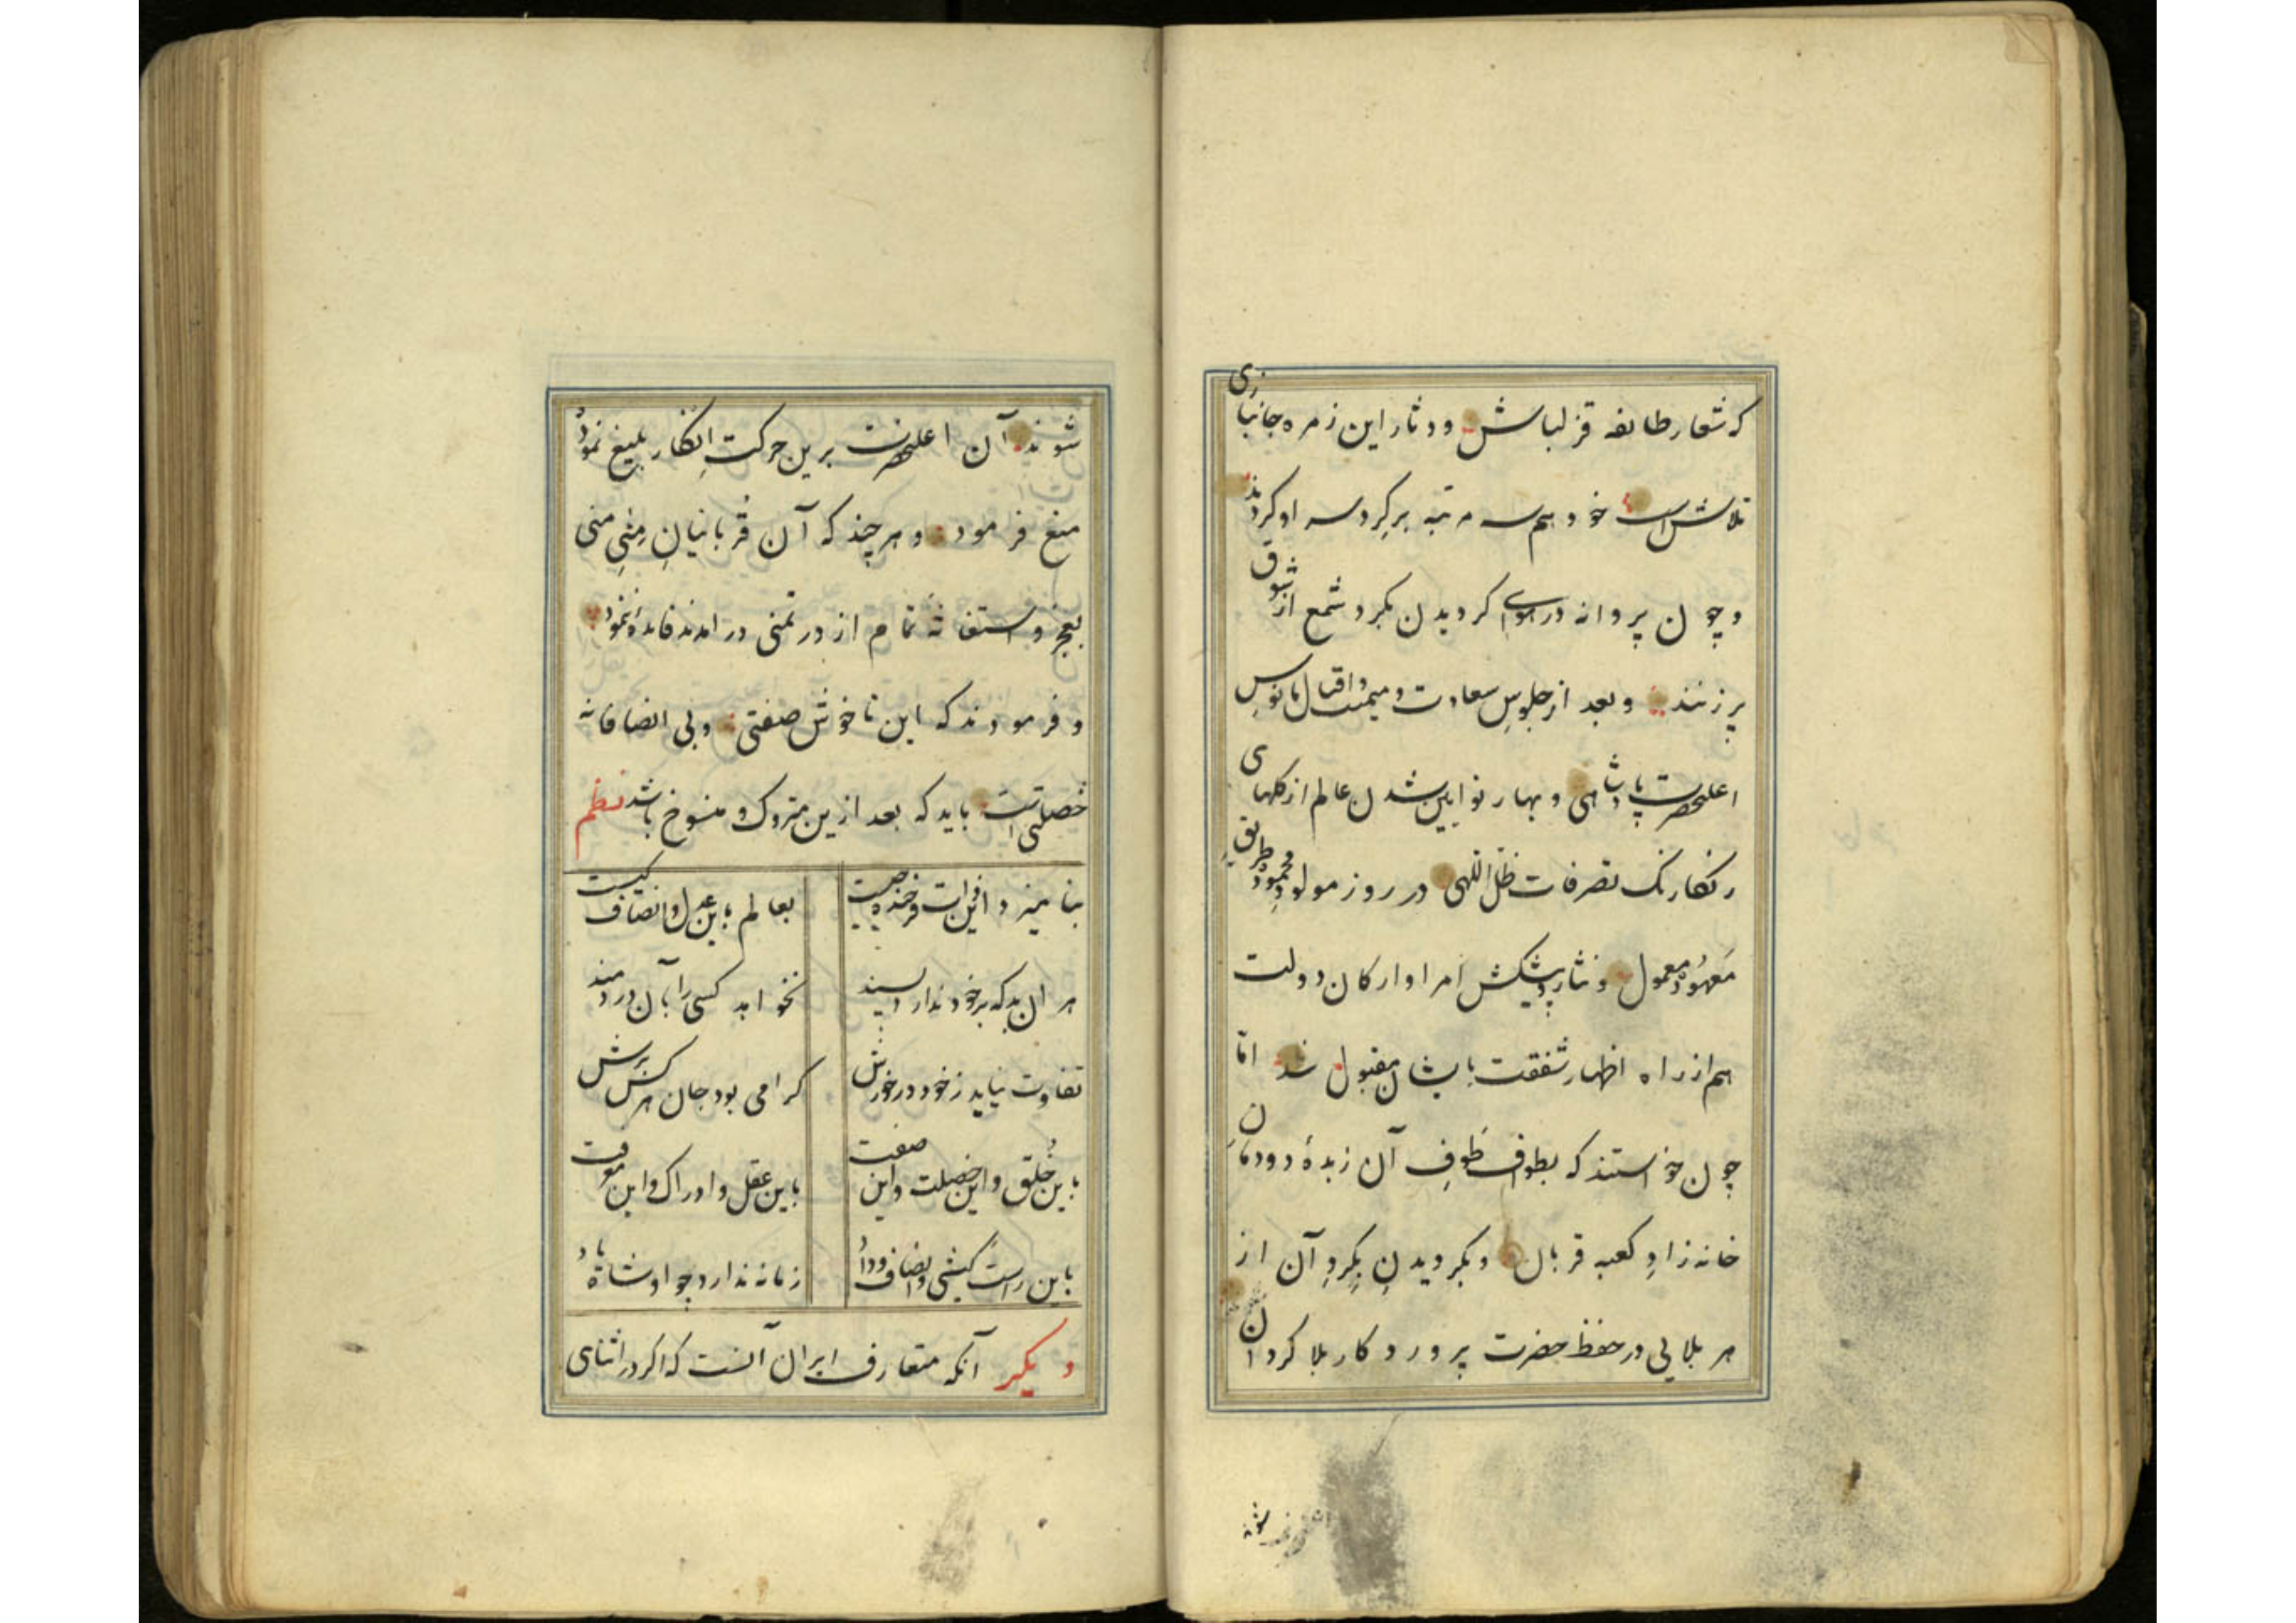 که شعار طائفه قزلباش و دثار این زمره جانبازی
تلاش است خود هم سه مرتبه بر کرد سه او کردند
و چون پروانه در هوای کردیدن بکرد شمع از شوق
پر زنند و بعد از جلوس سعادت و میمنت و اقبال مانوس
اعلیحضرت پادشاهی و بهار نو ایین شدن عالم از کلهای
رنکارنک تصرفات ظل اللهی در روز مولود محمود طریق
معهود معمول و نثار و پیشکش امرا و ارکان دولت
هم از راه اظهار شفقت بایشان مقبول شد اما
چون خواستند که بطواف طوف آن زبدهٔ دودمان
خانه زاد کعبه قربال و بکردیدن بکرد آن از
هر بلایی در حفظ حضرت پروردکار بلا کردان
شوند
شوند آن اعلیحضرت برین حرکت انکار بلیغ نموده
منع فرمود و هر چند که آن قربانیان منی منی
بعجز و استغاثه تمام از در تمنی در امدند فائدهٔ ننمود
و فرمودند که این ناخوش صفتی و بی انصافانه
خصلتی است باید که بعد ازین متروک و منسوخ باشد نظم
بنامیزد این ذات فرخنده چیست بعالم باین عدل و انصاف کیست
هر ان بد که بر خود ندارد پسند نخواهد کسی را بآن دردمند
تفاوت نیابد ز خود در خورش کرامی بود جان هر کس برش
باین خلق و این خصلت و این صفت باین عقل و ادراک و این معرفت
باین راست کیشی و انصاف و داد زمانه ندارد چو او شاه یاد
دیکر آنکه متعارف ایران آنست که اکر در اثنای